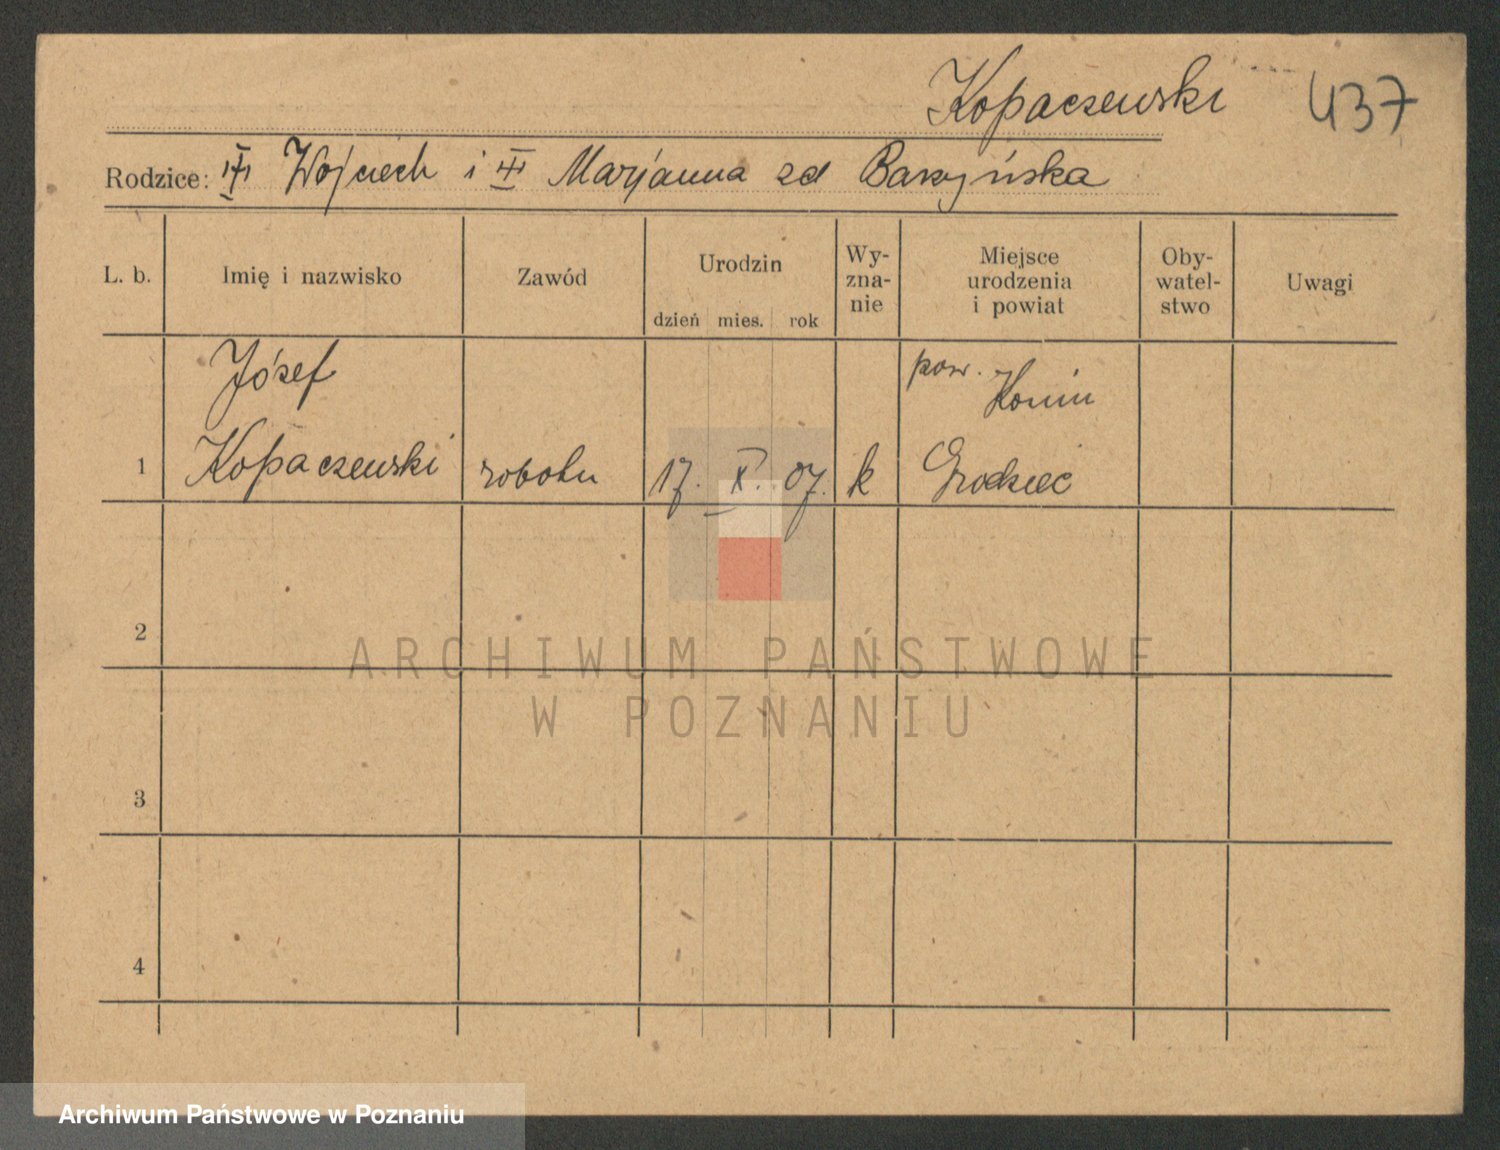 Kopaczewski 437
Rodzice: Wojciech i Marjanna zd Barzyńska
L. b.
Imię i nazwisko
Zawód
Urodzin
dzień mies. rok
Wy-
zna-
nie
Miejsce
urodzenia
i powiat
Oby-
watel-
stwo
Uwagi
Józef
pow. Konin
1 Kopaczewski robotn 17. X. 07. k Grodziec
2
3
4
ARCHIWUM PAŃSTWOWE
W POZNANIU
Archiwum Państwowe w Poznaniu